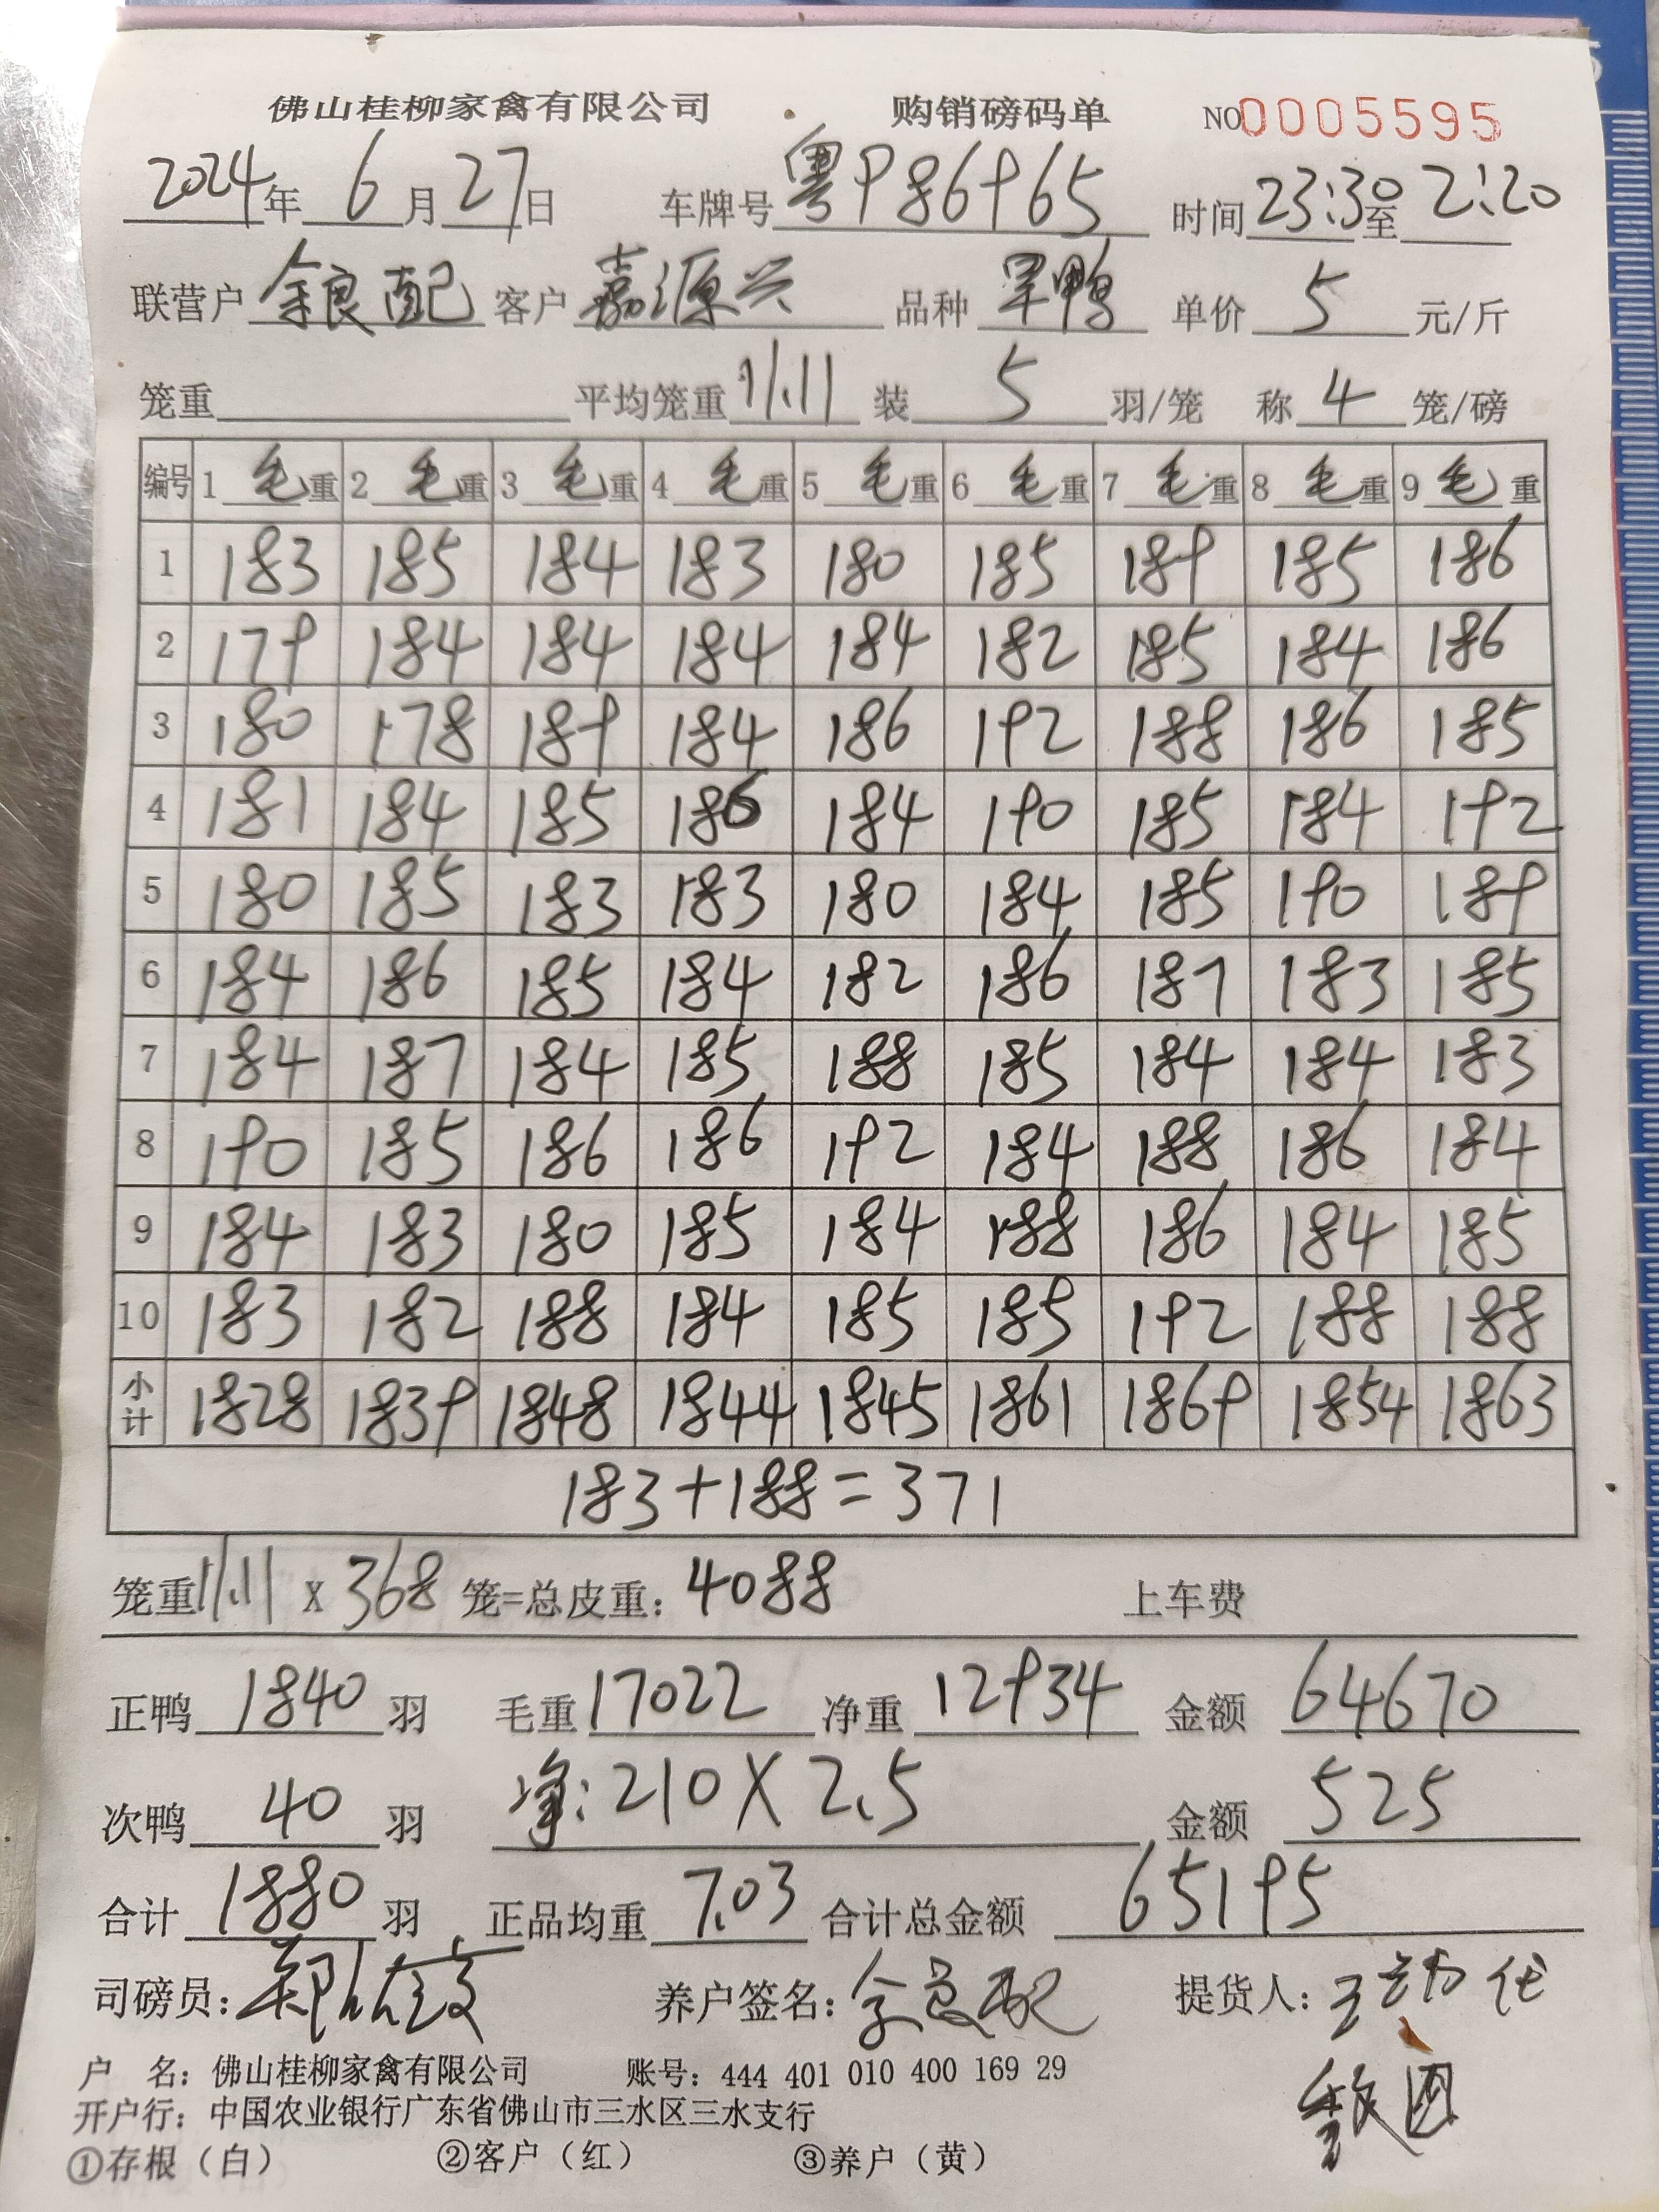 佛山桂柳家禽有限公司 购销磅码单 NO0005595
2024年6月27日 车牌号粤P86965 时间23:30至2:20
联营户余良配 客户嘉源兴 品种旱鸭 单价5元/斤
笼重 平均笼重11.11 装5羽/笼 称4笼/磅
编号 1毛重 2毛重 3毛重 4毛重 5毛重 6毛重 7毛重 8毛重 9毛重
1 183 185 184 183 180 185 189 185 186
2 179 184 184 184 184 182 185 184 186
3 180 178 189 184 186 192 188 186 185
4 181 184 185 186 184 190 185 184 192
5 180 185 183 183 180 184 185 190 189
6 184 186 185 184 182 186 187 183 185
7 184 187 184 185 188 185 184 184 183
8 190 185 186 186 192 184 188 186 184
9 184 183 180 185 184 188 186 184 185
10 183 182 188 184 185 185 192 188 188
小计 1828 1839 1848 1844 1845 1861 1869 1854 1863
183+188=371
笼重11.11 X 368笼=总皮重:4088 上车费
正鸭1840羽 毛重17022 净重12934 金额64670
次鸭40羽 净:210X2.5 金额525
合计1880羽 正品均重7.03 合计总金额65195
司磅员: 养户签名:余良配 提货人:
户 名:佛山桂柳家禽有限公司 账号:444 401 010 400 169 29
开户行:中国农业银行广东省佛山市三水区三水支行
①存根(白) ②客户(红) ③养户(黄)